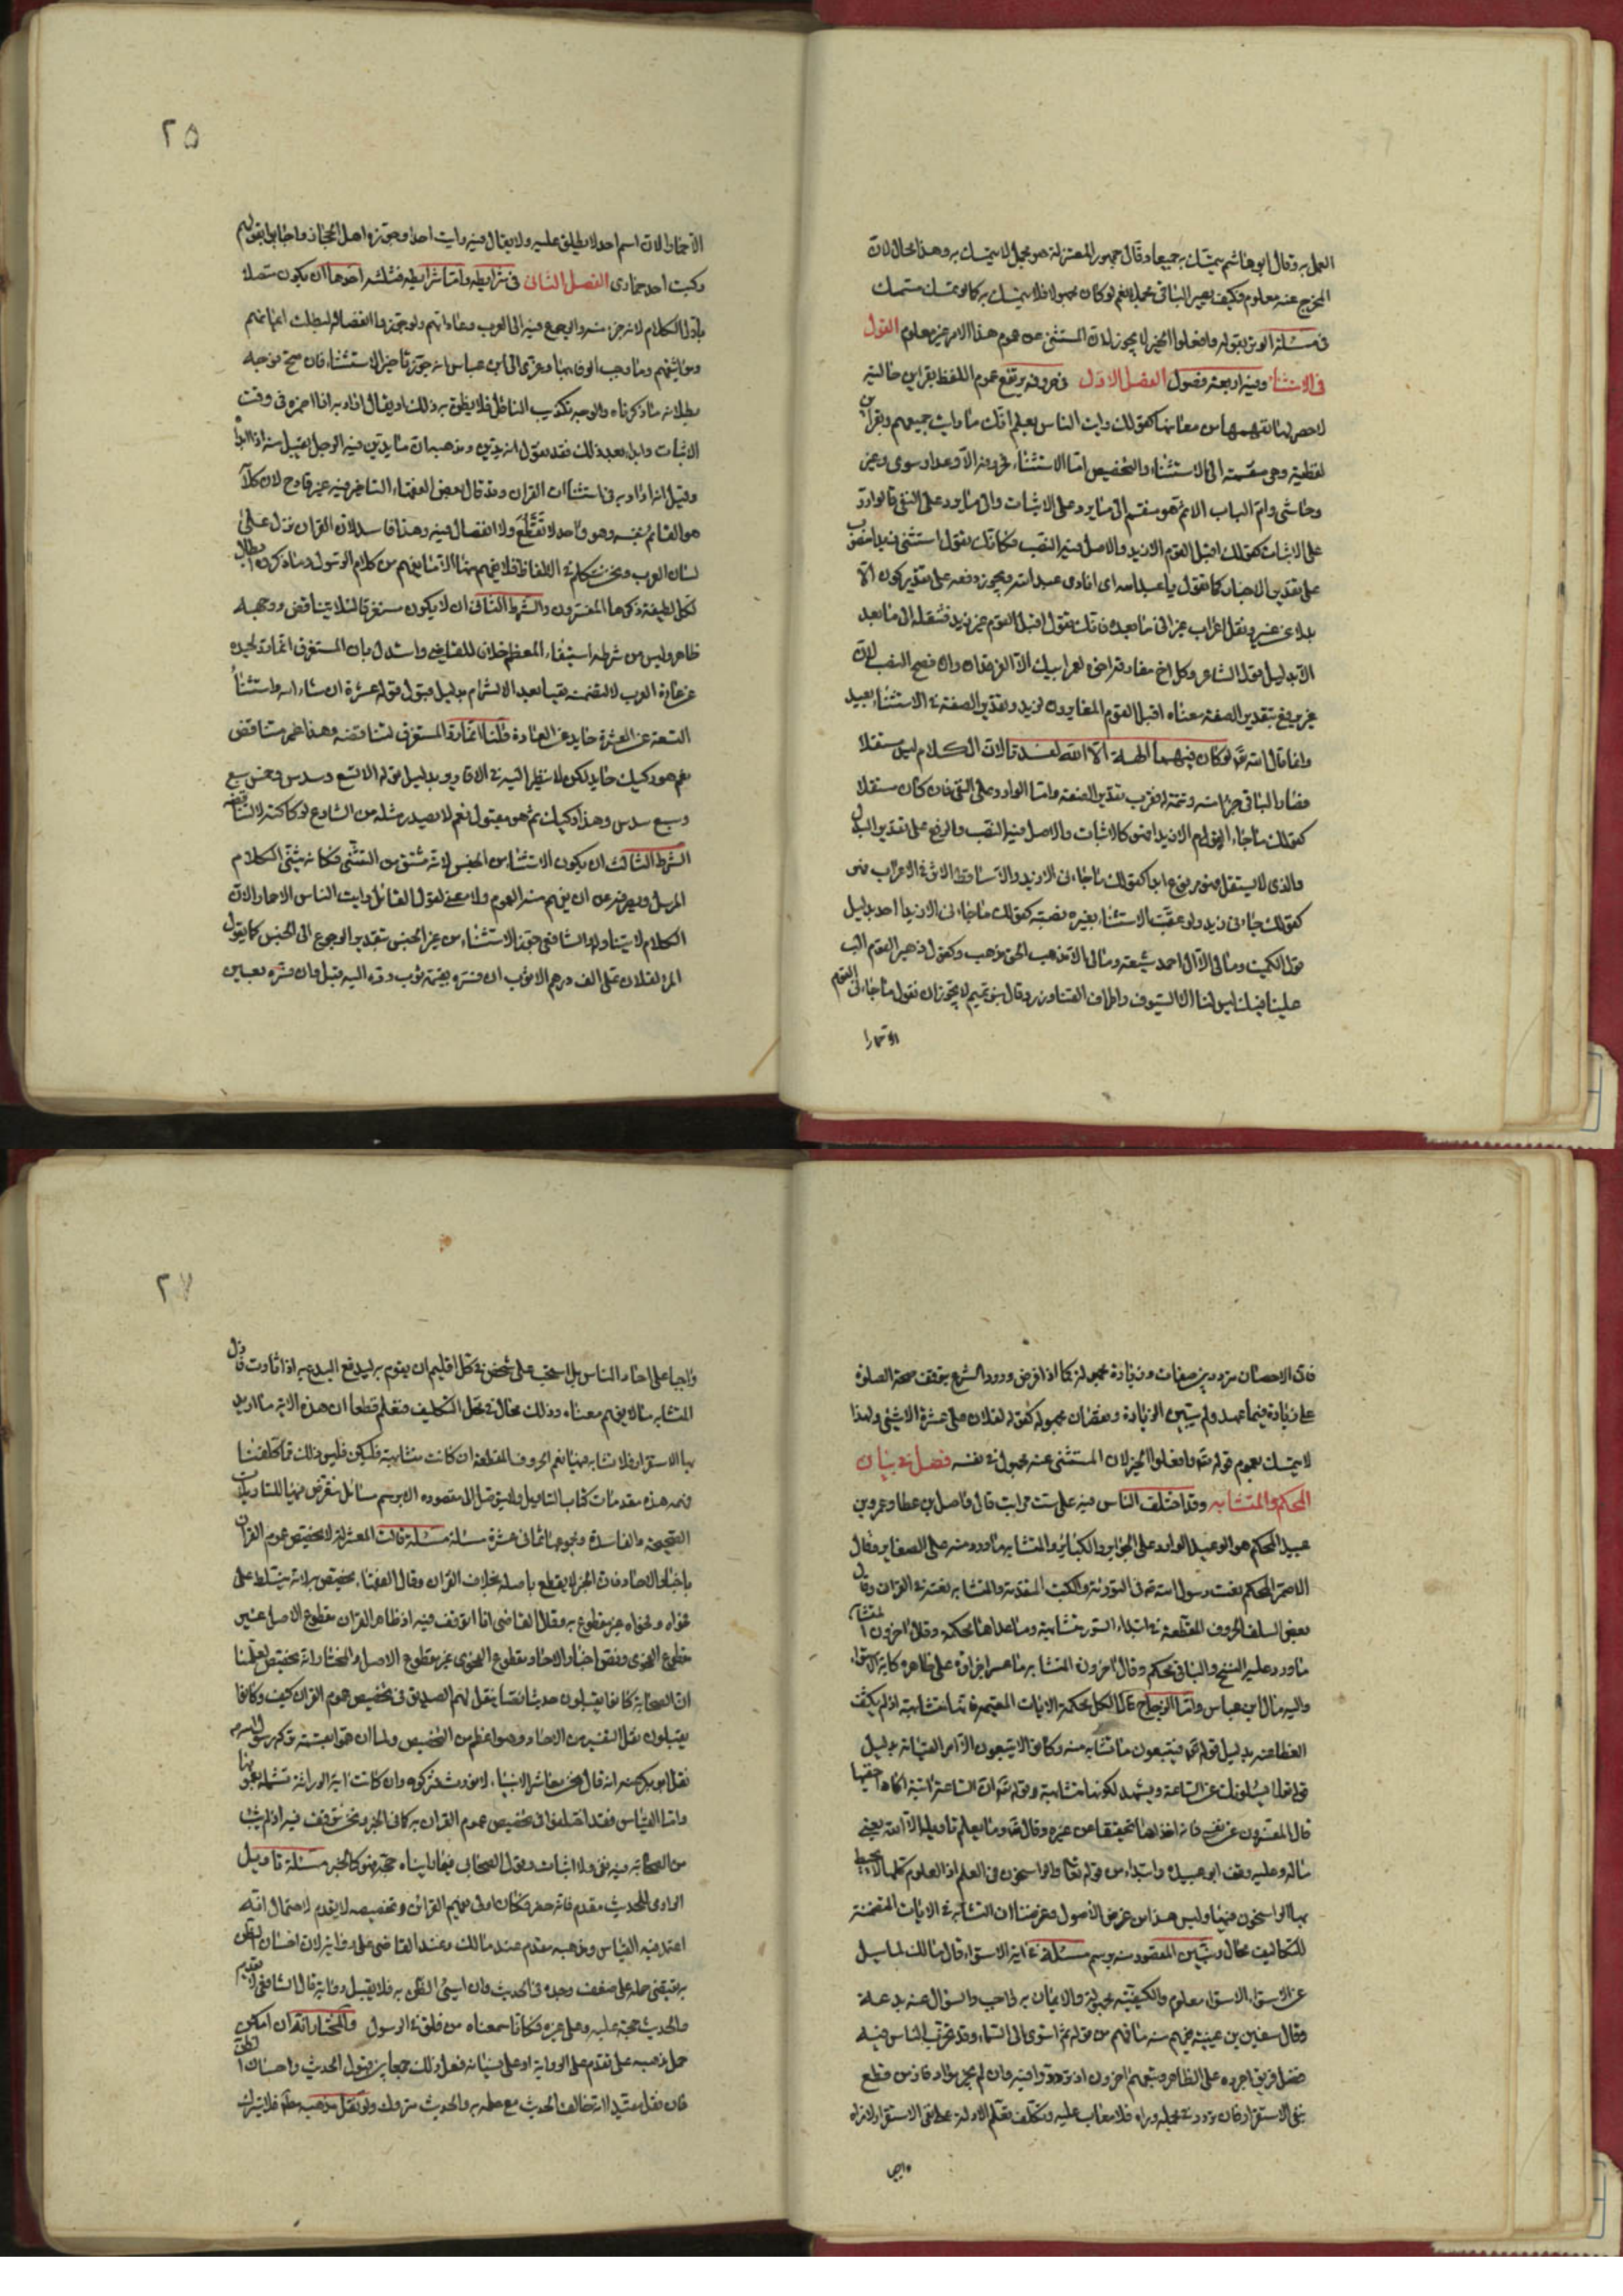 العمل به وقال ابو هاشم يتمسك به جميعا وقال جمهور المعتزلة هو مجمل لا يتمسك به وهذا محال لان
المخرج عنه معلوم فكيف يصير الباقي مجملا نعم لو كان مجهولا فلا يتمسك به كما لو تمسك متمسك
في مسئلة الوتر بقوله وافعلوا الخير لا يجوز لان المستثنى من عموم هذا الامر غير معلوم القول
في الاستثنا وفيه اربعة فصول الفصل الاول في حروفه يرتفع عموم اللفظ بقراين حالية
لا حصر لها تفهمها من معانيها كقولك رايت الناس يعلم انك ما رايت جميعهم وبقراين
لفظية وهي منقسمة الى الاستثناء والتخصيص اما الاستثناء فحروفه الا وعدا وسوى وغير
وحاشى وام الباب الا ثم هو منقسم الى ما يرد على الاثبات والى ما يرد على النفي فالوارد
على الاثبات كقولك اقبل القوم الا زيدا والاصل فيه النصب فكانك تقول استثني زيدا
على تقدير الاخبار كما تقول يا عبد الله اي انادي عبد الله ويجوز رفعه على تقدير كون الا
بدلا عن غير وينقل اعراب غير الى ما بعده فانك تقول اقبل القوم غير زيد فتنقله الى ما بعد
الا بدليل قول الشاعر وكل اخ مفارقه اخوه لعمر ابيك الا الفرقدان وان فصح النصب لان
غير يرفع بتقدير الصفة معناه اقبل القوم المغايرون لزيد وتقدير الصفة في الاستثناء بعيد
وانما قال الله تع لو كان فيهما الهة الا الله لفسدتا لان الكلام ليس مستقلا
فصار الباقي جزا منه وتتمة له فقرب تقدير الصفة واما الوارد على النفي فان كان مستقلا
كقولك ما جاءني القوم الا زيدا فهو كالاثبات والاصل فيه النصب والرفع على تقدير البدل
والذي لا يستقل فهو مرفوع ابدا كقولك ما جاءني الا زيد والا ساقط الاثر في الاعراب فهو
كقولك جاءني زيد ولو عقبت الاستثناء بغيره نصبته كقولك ما جاءني الا زيدا احد بدليل
قول الكميت وما لي الا آل احمد شيعة وما لي الا مذهب الحق مذهب وكقول زهير القوم الب
علينا فيك ليس لنا الا السيوف واطراف القنا وزر وقال بنو تميم لا يجوز ان نقول ما جاءني القوم
الا حمارا
٢٥
الا حمارا لان اسم احد لا يطلق عليه ولا يقال فيه رايت احدا وجوزه اهل الحجاز واجابوا بقولهم
ركبت احد حماري الفصل الثاني في شرايطه واما شرايطه فثلثه احدها ان يكون متصلا
باول الكلام لانه جزء منه والرجوع فيه الى العرب وعاداتهم ولو جوزوا انفصاله لبطلت
ومواثيقهم وما وجب الوفاء بها وعزي الى ابن عباس انه جوز تاخير الاستثناء فان صح فوجه
بطلانه ما ذكرناه والوجه تكذيب الناقل فلا يظن به ذلك او يقال اراد به اذا اضمره في وقت
الاثبات وابداه بعد ذلك فقد نقول انه يدين ومذهبه ان ما يدين فيه الرجل يقبل منه اذا ابداه
وقيل انه اراد به في استثناات القران وقد قال بعض الفقهاء التاخر فيه غير قادح لان كلام الله
هو القائم بنفسه وهو واحد لا تقطع ولا انفصال فيه وهذا فاسد لان القران نزل على
لسان العرب ونحن نتكلم في الالفاظ فلا يفهم منها الا ما يفهم من كلام الرسول وما ذكروه ابطال
لكل لطيفة ذكرها المفسرون والشرط الثاني ان لا يكون مستغرقا لئلا يتناقض ووجهه
ظاهر وليس من شرطه استبقاء المعظم خلافا للقاضي واستدل بان المستغرق
عن عادة العرب لا لتضمنه نفيا بعد الالتزام بدليل قبول قوله عشرة ان شاء الله واستثناء
التسعة عن العشرة حايد عن العادة قلنا انما رد المستغرق لتناقضه وهذا غير متناقض
نعم هو ركيك حايد لكن لا ينظر اليه في الاقارير بدليل قوله الا تسع وسدس وخمس سبع
وسبع سدس وهذا ركيك ثم هو مقبول نعم لا يصدر مثله من الشارع لركاكته لا لتناقضه
الشرط الثالث ان يكون الاستثنا من الجنس لانه مشتق من التثني فكانه يثني الكلام
المرسل ويصرفه عن ان يفهم منه العموم ولا معنى لقول القائل رايت الناس الا حمارا لان
الكلام لا يتناوله والشافعي جوز الاستثناء من غير الجنس بتقدير الرجوع الى الجنس كما يقول
المرء لفلان علي الف درهم الا ثوب ان فسره بقيمة ثوب رده اليه قبل وان فسره بعين
فان الاحصان مردد بين صفات وزيادة مجهولة كما اذا فرض ورود الشرع بتوقف صحة الصلوة
على زيادة فيما عهد ولم يتبين الزيادة ونقصان مجهول كقوله لفلان علي عشرة الا شيئ ولهذا
لا يتمسك بعموم قوله تع وافعلوا الخير لان المستثنى عنه مجهول في نفسه فصل في بيان
المحكم والمتشابه وقد اختلف الناس فيه على ست مراتب قال واصل بن عطا وعمرو بن
عبيد المحكم هو الوعيد الوارد على الجراير والكبائر والمتشابه ما ورد منه على الصغاير وقال
الاصم المحكم نعت رسول الله تع في التورية والكتب المتقدمة والمتشابه نعته في القران وقال
بعض السلف الحروف المقطعة في ابتداء السور متشابهة وما عداها محكمة وقال اخرون المتشابه
ما ورد عليه النسخ والباقي محكم وقال اخرون المتشابه ما عسر اجراؤه على ظاهره كاية الاستواء
واليه مال ابن عباس واما الزجاج قال الكل محكمة الا ايات القيمة فانها متشابهة اذ لم يكشف
الغطا عنه بدليل قوله تع فيتبعون ما تشابه منه وكانوا لا يتبعون الا امر القيامة بدليل
قوله تع يسئلونك عن الساعة ويشهد لكونها متشابهة قوله تع ان الساعة اتية اكاد اخفيها
قال المفسرون عن نفسي فانه اخذ لها تحقيقا عن غيره وقال تع وما يعلم تاويله الا الله يعني
ماله وعليه وقف ابو عبيدة وابتداء من قوله تعالى والراسخون في العلم اذ العلوم كلها لا يحيط
بها الراسخون فيها وليس هذا من غرض الاصول وغرضنا ان التشابه في الايات المتضمنة
للتكاليف محال ويتبين المقصود منه برسم مسئلة في اية الاستواء قال مالك لما سئل
عن الاستواء الاستواء معلوم والكيفية مجهولة والايمان به واجب والسؤال عنه بدعة
وقال سفين بن عيينة يفهم منه ما فهم من قوله ثم استوى الى السماء وقد تحزب الناس فيه
فضل فريق اجروه على الظاهر وتبعهم اخرون اذ ترددوا فيه وان لم يجزموا وفاز من قطع
بنفي الاستقرار فان تردد في محله وراه فلا معاب عليه وتكلف تعلم الادلة على نفي الاستقرار لا نراه
واجبا
٢٧
واجبا على احاد الناس بل يجب على شخص في كل اقليم ان يقوم به ليدفع البدع به اذا ثارت فان قيل
المتشابه ما لا يفهم معناه وذلك محال في محل التكليف فنعلم قطعا ان هذه الاية ما اريد
بها الاستقرار فلا تشابه فيها نعم الحروف المقطعة ان كانت متشابهة فليكن فليس ذلك مما كلفنا
فهمه هذه مقدمات كتاب التاويل ولا يتوصل الى مقصوده الا برسم مسائل نفرض فيها للتاويلات
الصحيحة والفاسدة ومجموعها ثماني عشرة مسئلة مسئلة قالت المعتزلة لا يخصص عموم القران
باخبار الاحاد فان الخبر لا يقطع باصله بخلاف القران وقال الفقهاء يخصص به لانه يتسلط على
فحواه وفحواه غير مقطوع به وقال القاضي انا اتوقف فيه اذ ظاهر القران مقطوع الاصل غير
مقطوع الفحوى ونص اخبار الاحاد مقطوع الفحوى غير مقطوع الاصل والمختار انه يخصص لعلمنا
ان الصحابة كانوا يقبلون حديثا نصا ينقل لهم الصديق في تخصيص عموم القران كيف وكانوا
يقبلون نقل التفسير من الاحاد وهو اعظم من التخصيص ولما ان هموا بقسمة تركة رسول الله
نقل ابو بكر عنه انه قال نحن معاشر الانبياء لا نورث فتركوه وان كانت اية الوراثة تشمله بعمومها
واما القياس فقد اختلفوا في تخصيص عموم القران به كما في الخبر ونحن نتوقف فيه اذ لم يثبت
من الصحابة فيه نفي ولا اثبات وقول الصحابي فيما رايناه حجة فهو كالخبر مسئلة تاويل
الراوي للحديث مقدم فانه حضر فكان اولى بفهم القرائن وتخصيصه لا يقدم لاحتمال انه
اعتمد فيه القياس ومذهبه مقدم عند مالك وعند القاضي على روايته لان احسان الظن
به يقتضي حمله على ضعف وجده في الحديث وان اسيئ الظن به فلا يقبل روايته قال الشافعي لا تقديم
والحديث حجة عليه وعلى غيره فكانا سمعناه من فلق في الرسول والمختار انه ان امكن
حمل مذهبه على تقدم على الرواية او على نسيانه فعل ذلك جمعا بين قبول الحديث واحسان الظن
فان نقل مقيدا انه خالف الحديث مع علمه به والحديث متروك ولو نقل مذهبه مطلقا فلا يترك